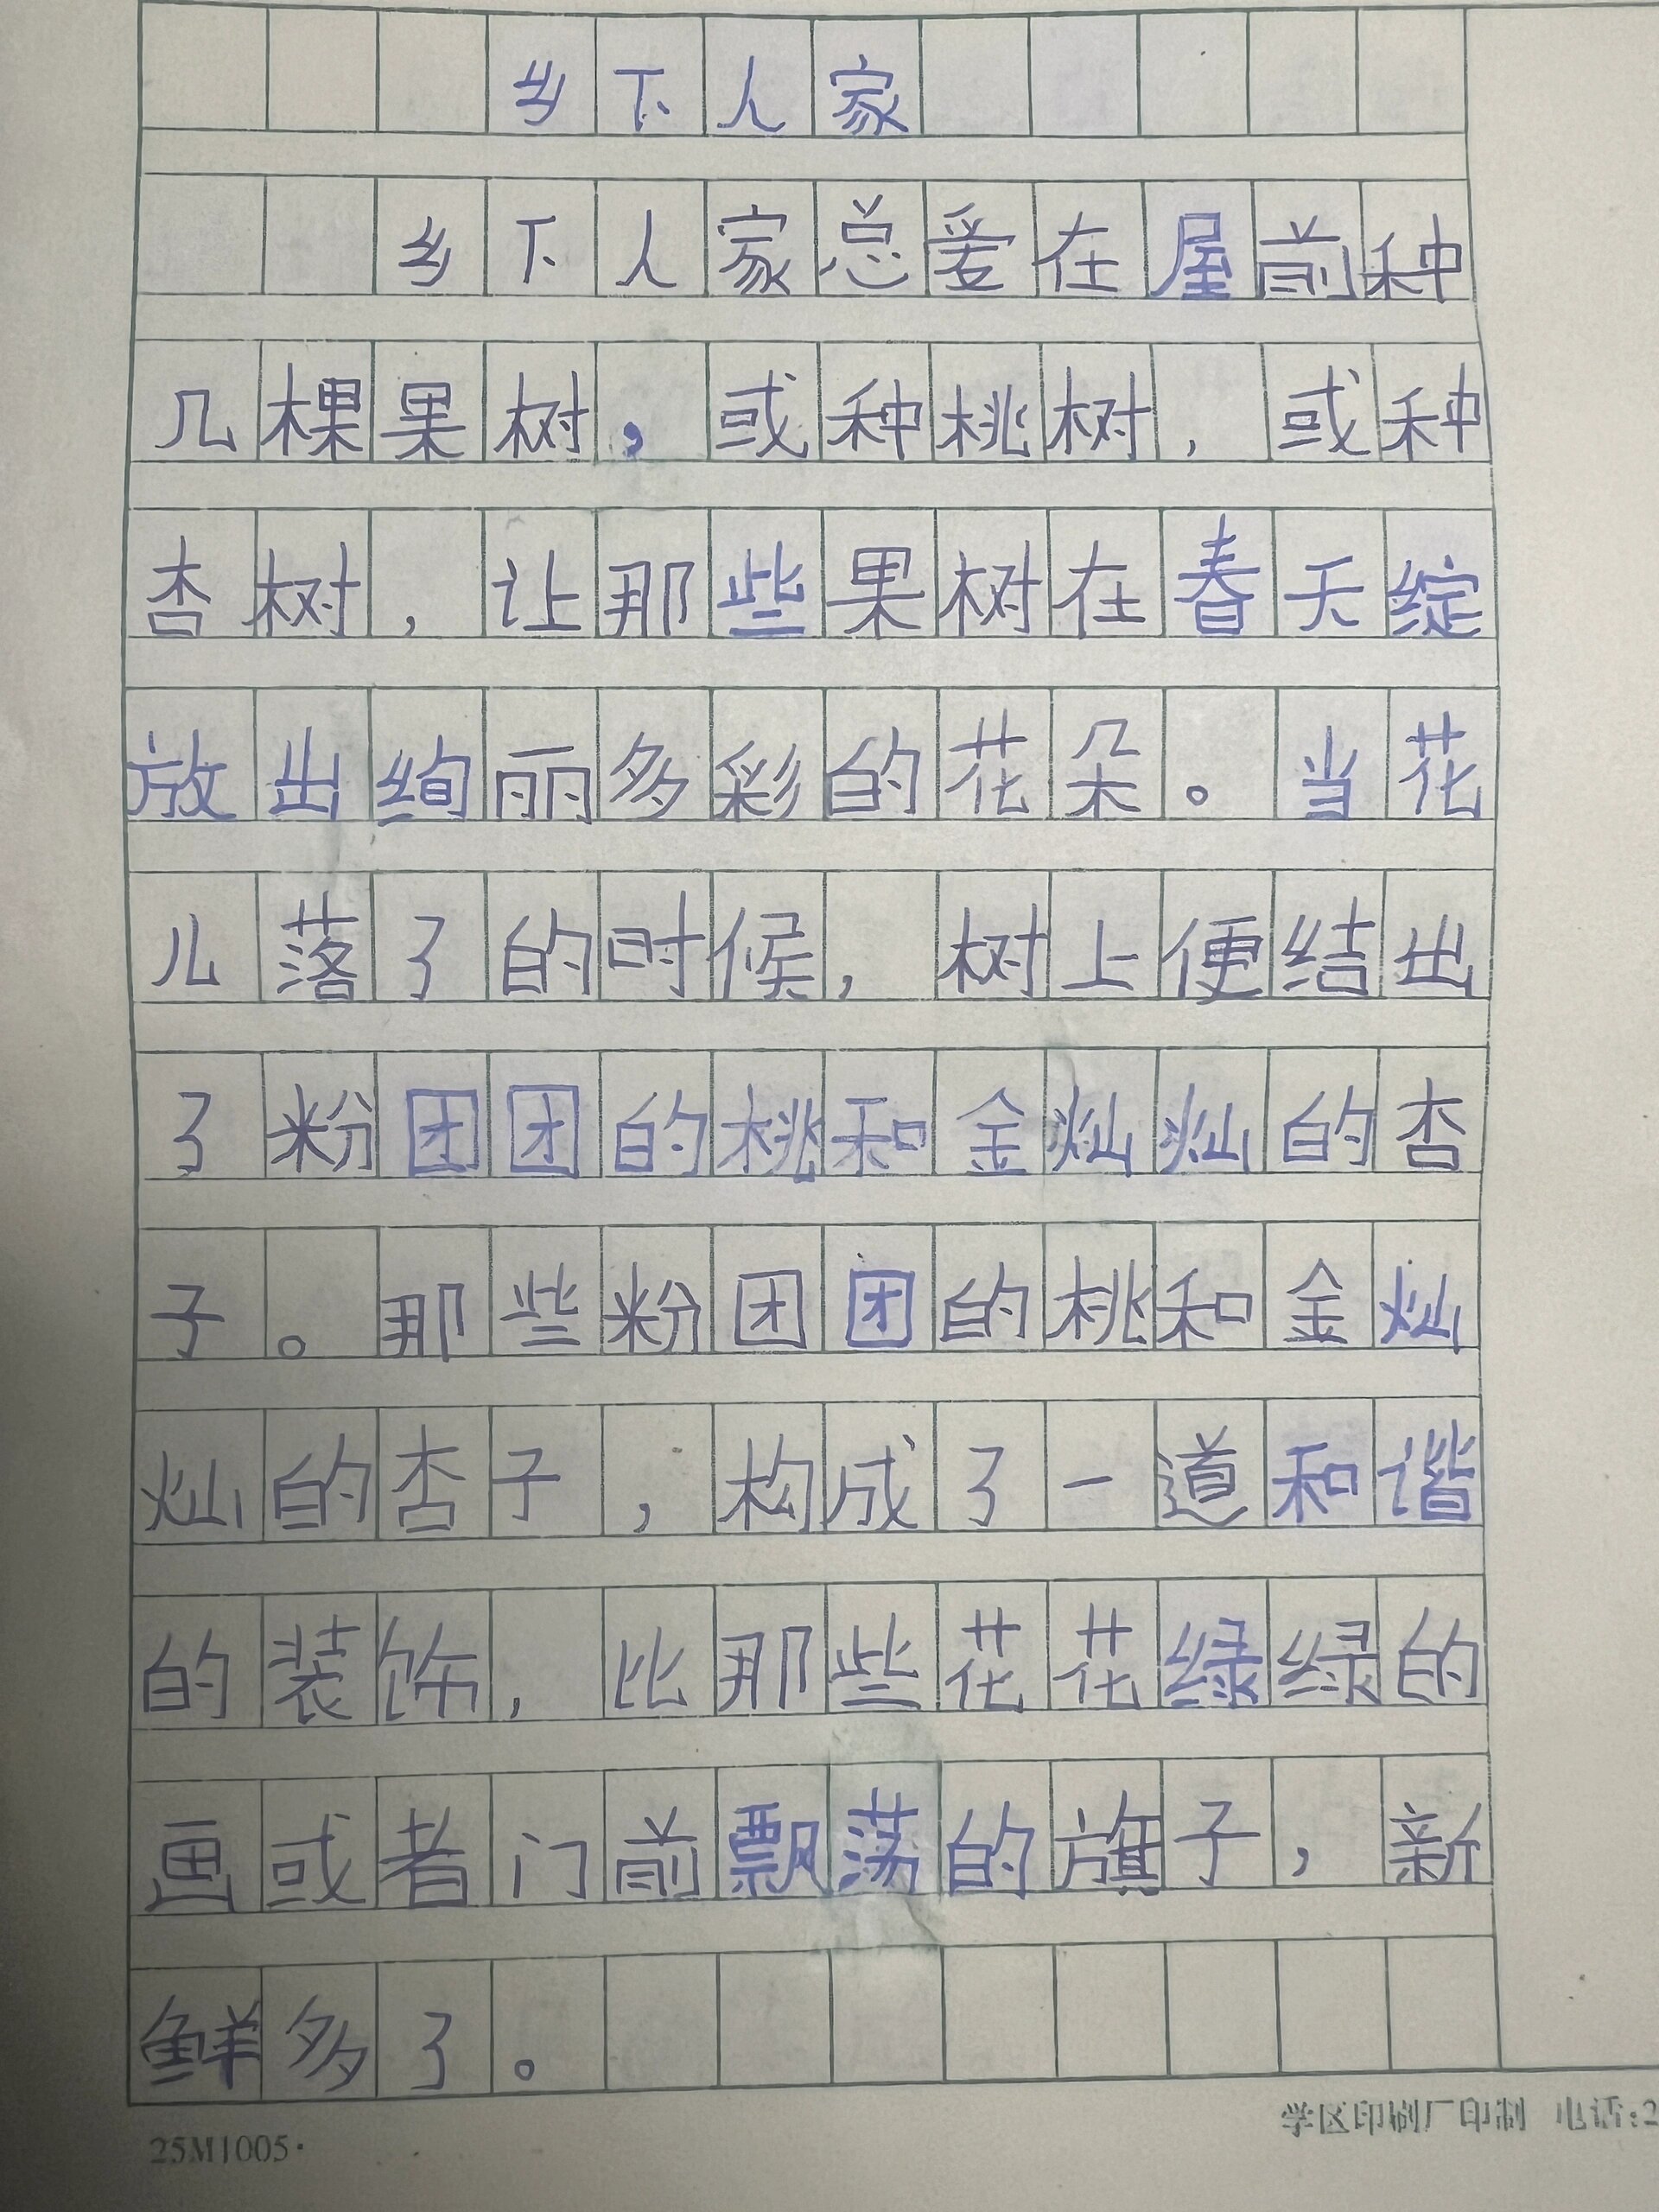 乡下人家
乡下人家总爱在屋前种
几棵果树，或种桃树，或种
杏树，让那些果树在春天绽
放出绚丽多彩的花朵。当花
儿落了的时候，树上便结出
了粉团团的桃和金灿灿的杏
子。那些粉团团的桃和金灿
灿的杏子，构成了一道和谐
的装饰，比那些花花绿绿的
画或者门前飘荡的旗子，新
鲜多了。
学区印刷厂印制 电话:2
25M1005·